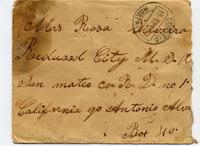 Mrs Rosa Silveira
Redwood City M.
San mateo Co R. D. no 1
California go Antonio Alves
Box 40.
HORTA